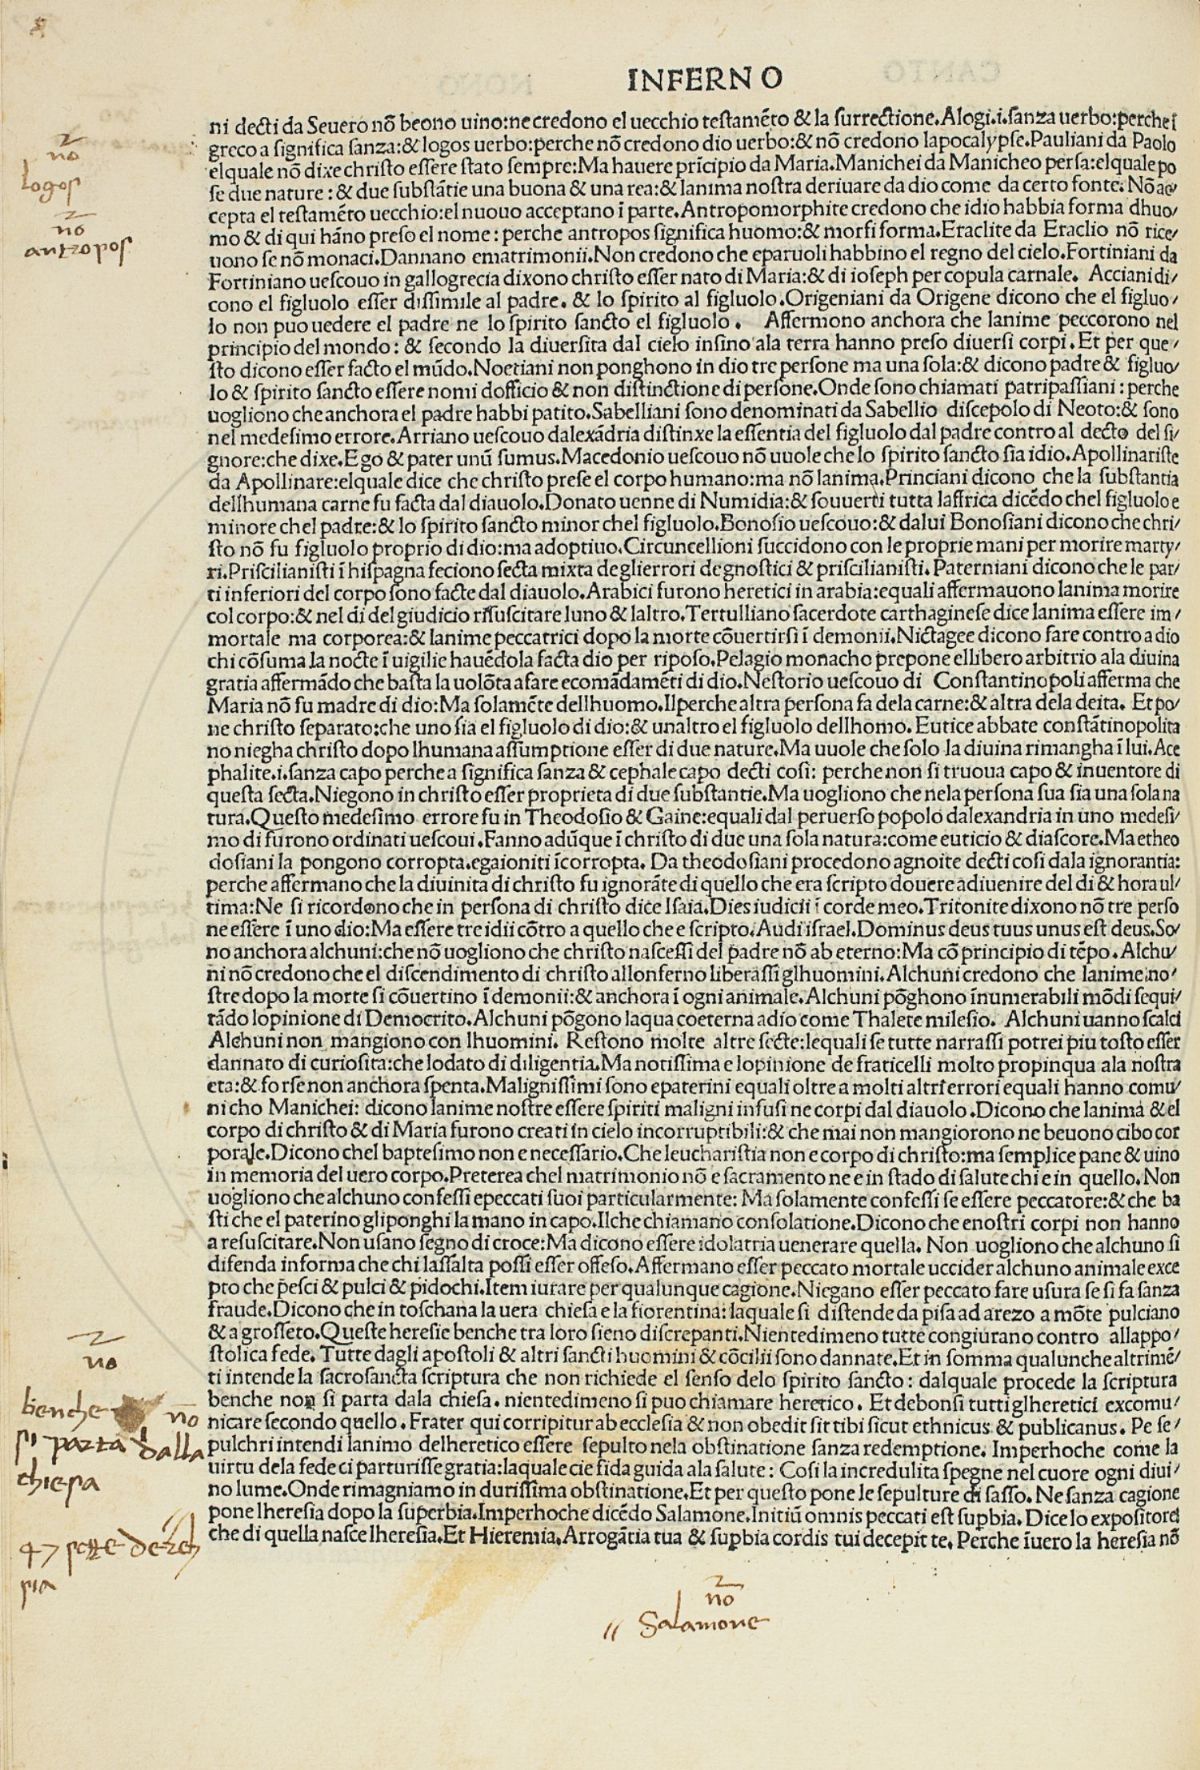 INFERNO
ni decti da Seuero nō beono uino:ne credono el uecchio testamēto & la surrectione. Alogi.i.sanza uerbo:perche ī
greco a significa sanza:& logos uerbo:perche nō credono dio uerbo:& nō credono lapocalypse.Pauliani da Paolo
elquale nō dixe christo essere stato sempre:Ma hauere prīcipio da Maria.Manichei da Manicheo persa:elquale po
se due nature:& due substātie una buona & una rea:& lanima nostra deriuare da dio come da certo fonte. Nō ac/
cepta el testamēto uecchio:el nuouo acceptano ī parte.Antropomorphite credono che idio habbia forma dhuo/
mo & di qui hāno preso el nome: perche antropos significa huomo:& morfi forma.Eraclite da Eraclio nō rice/
uono se nō monaci.Dannano ematrimonii.Non credono che eparuoli habbino el regno del cielo.Fortiniani da
Fortiniano uescouo in gallogrecia dixono christo esser nato di Maria:& di ioseph per copula carnale. Acciani di/
cono el figluolo esser dissimile al padre. & lo spirito al figluolo.Origeniani da Origene dicono che el figluo/
lo non puo uedere el padre ne lo spirito sancto el figluolo. Affermono anchora che lanime peccorono nel
principio del mondo: & secondo la diuersita dal cielo insino ala terra hanno preso diuersi corpi.Et per que/
sto dicono esser facto el mūdo.Noetiani non ponghono in dio tre persone ma una sola:& dicono padre & figluo/
lo & spirito sancto essere nomi dofficio & non distinctione di persone.Onde sono chiamati patripassiani: perche
uogliono che anchora el padre habbi patito.Sabelliani sono denominati da Sabellio discepolo di Neoto:& sono
nel medesimo errore.Arriano uescouo dalexādria distinxe la essentia del figluolo dal padre contro al decto del si/
gnore:che dixe.Ego & pater unū sumus.Macedonio uescouo nō uuole che lo spirito sancto sia idio.Apollinariste
da Apollinare:elquale dice che christo prese el corpo humano:ma nō lanima.Princiani dicono che la substantia
dellhumana carne fu facta dal diauolo.Donato uenne di Numidia:& souuerti tutta laffrica dicēdo chel figluolo e
minore chel padre:& lo spirito sancto minor chel figluolo.Bonosio uescouo:& dalui Bonosiani dicono che chri/
sto nō fu figluolo proprio di dio:ma adoptiuo.Circuncellioni succidono con le proprie mani per morire marty/
ri.Priscilianisti ī hispagna feciono secta mixta deglierrori degnostici & priscilianisti. Paterniani dicono che le par/
ti inferiori del corpo sono facte dal diauolo.Arabici furono heretici in arabia:equali affermauono lanima morire
col corpo:& nel di del giudicio risuscitare luno & laltro.Tertulliano sacerdote carthaginese dice lanima essere im/
mortale ma corporea:& lanime peccatrici dopo la morte cōuertirsi ī demonii.Nictagee dicono fare contro a dio
chi cōsuma la nocte ī uigilie hauēdola facta dio per riposo.Pelagio monacho prepone ellibero arbitrio ala diuina
gratia affermādo che basta la uolōta afare ecomādamēti di dio.Nestorio uescouo di Constantinopoli afferma che
Maria nō fu madre di dio:Ma solamēte dellhuomo.Ilperche altra persona fa dela carne:& altra dela deita. Et po/
ne christo separato:che uno sia el figluolo di dio:& unaltro el figluolo dellhomo. Eutice abbate constātinopolita
no niegha christo dopo lhumana assumptione esser di due nature.Ma uuole che solo la diuina rimangha ī lui.Ace
phalite.i.sanza capo perche a significa sanza & cephale capo decti cosi: perche non si truoua capo & inuentore di
questa secta.Niegono in christo esser proprieta di due substantie.Ma uogliono che nela persona sua sia una sola na
tura.Questo medesimo errore fu in Theodosio & Gaine:equali dal peruerso popolo dalexandria in uno medesi/
mo di furono ordinati uescoui.Fanno adūque ī christo di due una sola natura:come euticio & diascore.Ma etheo
dosiani la pongono corropta.egaioniti īcorropta. Da theodosiani procedono agnoite decti cosi dala ignorantia:
perche affermano che la diuinita di christo fu ignorāte di quello che era scripto douere adiuenire del di & hora ul/
tima:Ne si ricordono che in persona di christo dice Isaia.Dies iudicii ī corde meo.Tritonite dixono nō tre perso
ne essere ī uno dio:Ma essere tre idii cōtro a quello che e scripto.Audi israel.Dominus deus tuus unus est deus.So/
no anchora alchuni:che nō uogliono che christo nascessi del padre nō ab eterno:Ma cō principio di tēpo.Alchu/
ni nō credono che el discendimento di christo allonferno liberassi glhuomini.Alchuni credono che lanime no/
stre dopo la morte si cōuertino ī demonii:& anchora ī ogni animale.Alchuni pōghono īnumerabili mōdi sequi/
tādo lopinione di Democrito.Alchuni pōgono laqua coeterna a dio come Thalete milesio. Alchuni uanno scalci
Alchuni non mangiono con lhuomini. Restono molte altre secte:lequali se tutte narrassi potrei piu tosto esser
dannato di curiosita:che lodato di diligentia.Ma notissima e lopinione de fraticelli molto propinqua ala nostra
eta:& forse non anchora spenta.Malignissimi sono epaterini equali oltre a molti altri errori equali hanno comu/
ni cho Manichei: dicono lanime nostre essere spiriti maligni infusi ne corpi dal diauolo.Dicono che lanima & el
corpo di christo & di Maria furono creati in cielo incorruptibili:& che mai non mangiorono ne beuono cibo cor
porale.Dicono chel baptesimo non e necessario.Che leucharistia non e corpo di christo:ma semplice pane & uino
in memoria del uero corpo.Preterea chel matrimonio nō e sacramento ne e in stado di salute chi e in quello. Non
uogliono che alchuno confessi epeccati suoi particularmente: Ma solamente confessi se essere peccatore:& che ba
sti che el paterino gli ponghi la mano in capo.Ilche chiamano consolatione.Dicono che enostri corpi non hanno
a resuscitare.Non usano segno di croce:Ma dicono essere idolatria uenerare quella. Non uogliono che alchuno si
difenda informa che chi lassalta possi esser offeso.Affermano esser peccato mortale uccider alchuno animale exce
pto che pesci & pulci & pidochi.Item iurare per qualunque cagione.Niegano esser peccato fare usura se si fa sanza
fraude.Dicono che in toschana la uera chiesa e la fiorentina: laquale si distende da pisa ad arezo a mōte pulciano
& a grosseto.Queste heresie benche tra loro sieno discrepanti.Nientedimeno tutte congiurano contro allappo/
stolica fede. Tutte dagli apostoli & altri sancti huomini & cōcilii sono dannate.Et in somma qualunche altrimē/
ti intende la sacrosancta scriptura che non richiede el senso delo spirito sancto: dalquale procede la scriptura
benche non si parta dala chiesa. nientedimeno si puo chiamare heretico. Et debonsi tutti glheretici excomu/
nicare secondo quello. Frater qui corripitur ab ecclesia & non obedit sit tibi sicut ethnicus & publicanus. Pe se/
pulchri intendi lanimo delheretico essere sepulto nela obstinatione sanza redemptione. Imperhoche come la
uirtu dela fede ci parturisse gratia:laquale cie fida guida ala salute: Cosi la incredulita spegne nel cuore ogni diui/
no lume.Onde rimagniamo in durissima obstinatione.Et per questo pone le sepulture di sasso. Ne sanza cagione
pone lheresia dopo la superbia.Imperhoche dicēdo Salamone.Initiū omnis peccati est supbia. Dice lo expositore
che di quella nasce lheresia.Et Hieremia.Arrogātia tua & supbia cordis tui decepit te. Perche īuero la heresia nō
nō
logos
nō
antropos
no
benche nō
si parta dalla
chiesa
nō
Salamone